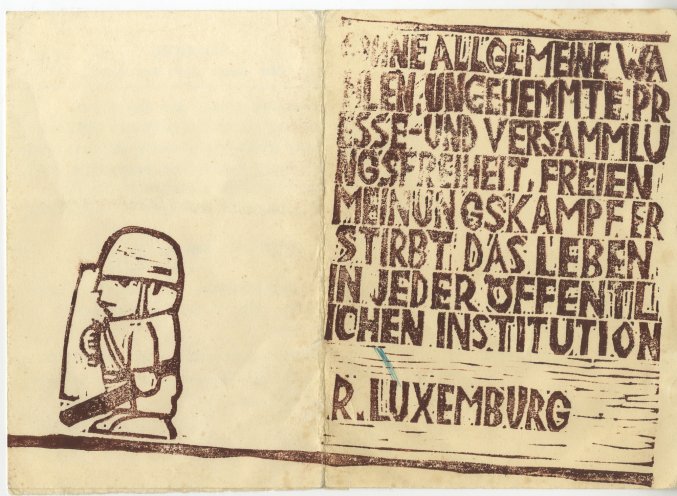 OHNE ALLGEMEINE WA
HLEN, UNGEHEMMTE PR
ESSE-UND VERSAMMLU
NGSFREIHEIT, FREIEN
MEINUNGSKAMPF ER
STIRBT DAS LEBEN
IN JEDER ÖFFENTL
ICHEN INSTITUTION
R. LUXEMBURG